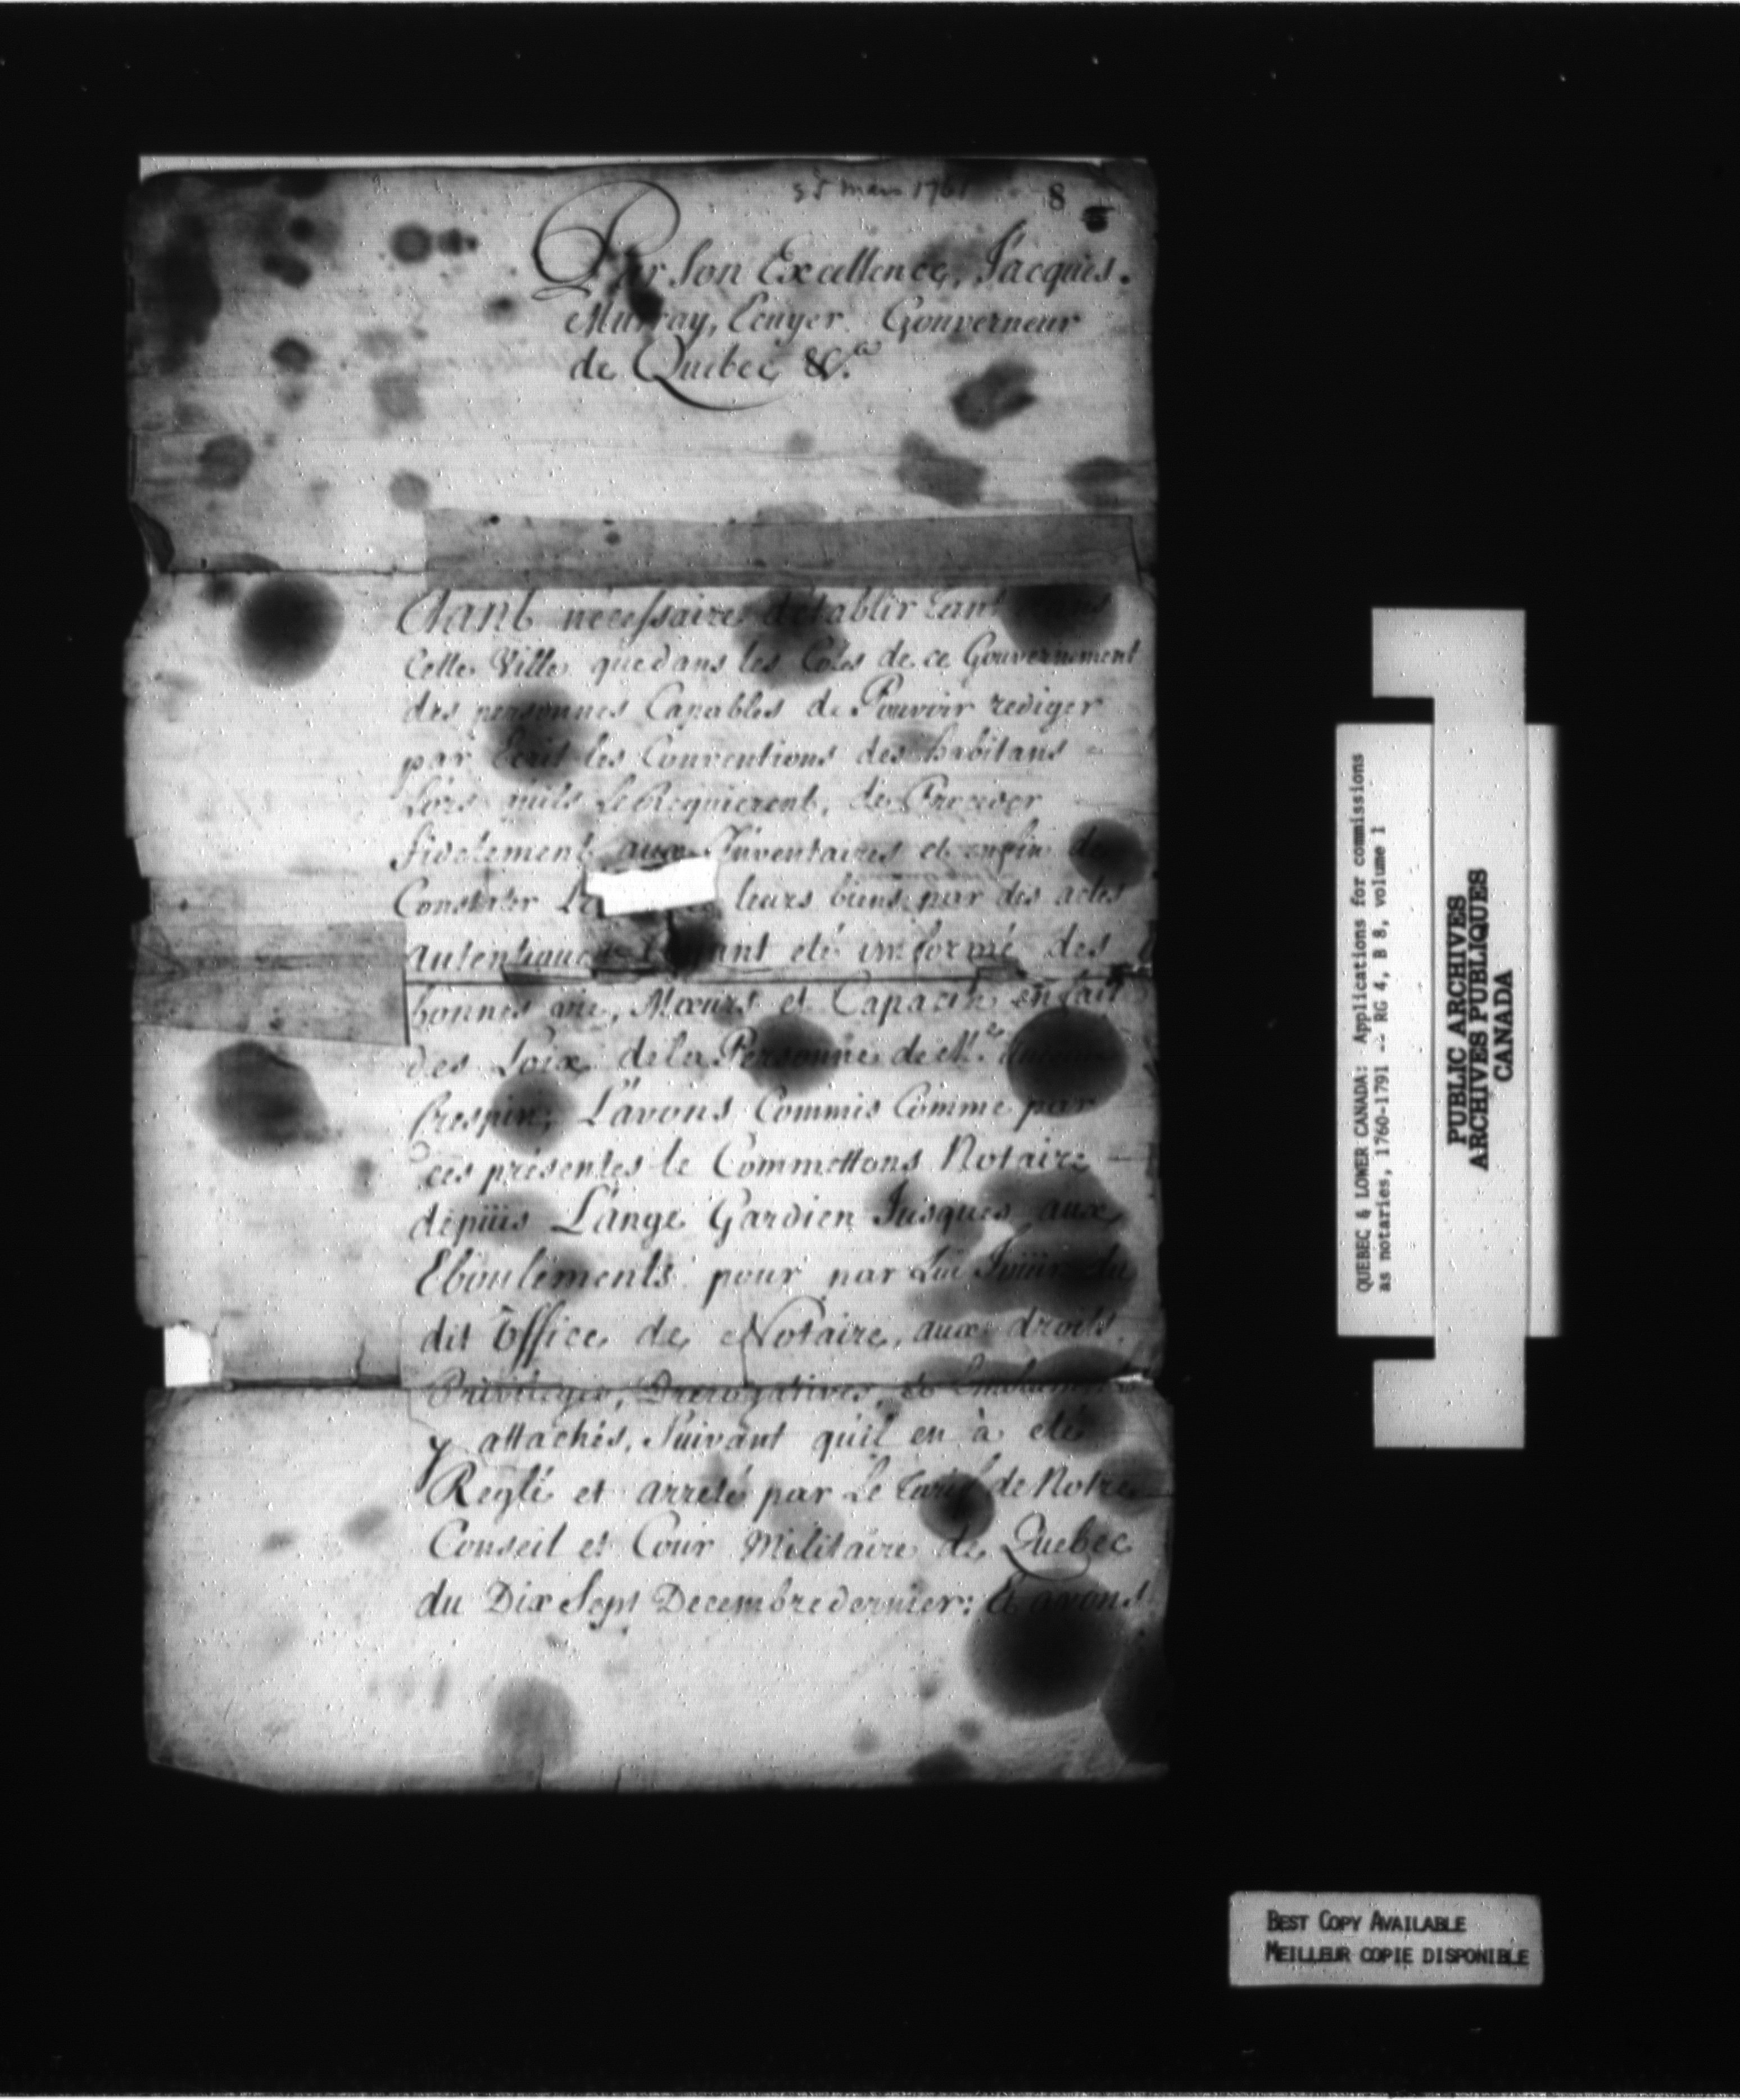 25 mars 1761
8
Par Son Excellence, Jacques.
Murray, Ecuyer. Gouverneur
de Quebec &.a
Etant nécessaire d'établir tant dans
Cette Ville que dans les Côtes de ce Gouvernement
des personnes Capables de Pouvoir rediger
par Ecrit les Conventions des habitans
Lors quils Le Requierent, de Proceder
fidelement aux Inventaires et enfin de
Constater leurs biens par des actes
autentiques ayant eté informé des
bonnes vie, Mœurs et Capacité en fait
des Loix de la Personne de M.e Antoine
Crespin; L'avons Commis Comme par
ces présentes le Commettons Notaire
dépüis L'ange Gardien Jusques aux
Eboulements pour par Lui Joüir du
dit Office de Notaire, aux droits,
Privileges, Prerogatives, et Emoluments
y attachés, Suivant quil en à eté
Reglé et arreté par Le Tarif de Notre
Conseil et Cour Militaire de Quebec
du Dix Sept Decembre dernier: Et avons
QUEBEC & LOWER CANADA: Applications for commissions
as notaries, 1760-1791 -- RG 4, B 8, volume 1
PUBLIC ARCHIVES
ARCHIVES PUBLIQUES
CANADA
BEST COPY AVAILABLE
MEILLEUR COPIE DISPONIBLE